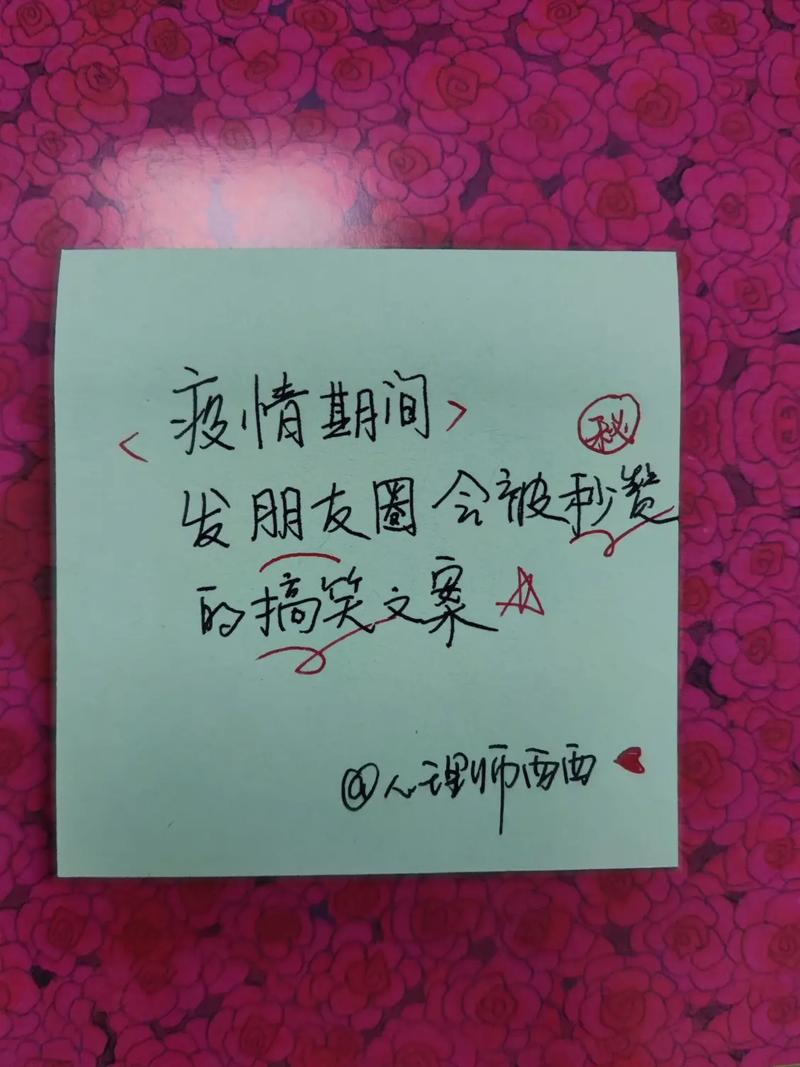 <疫情期间>
秘
发朋友圈会被秒赞
的搞笑文案
@心理师西西